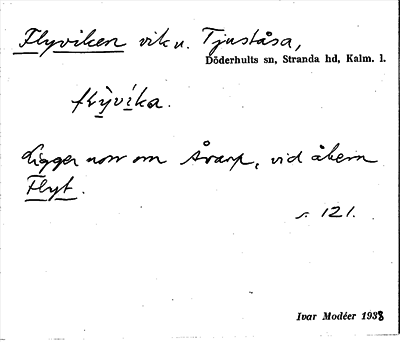 Flyviken vik u. Tjuståsa,
Döderhults sn, Stranda hd, Kalm. l.
flỳvíka.
Ligger norr om Århp, vid åkern
Flyt.
s. 121.
Ivar Modéer 1938